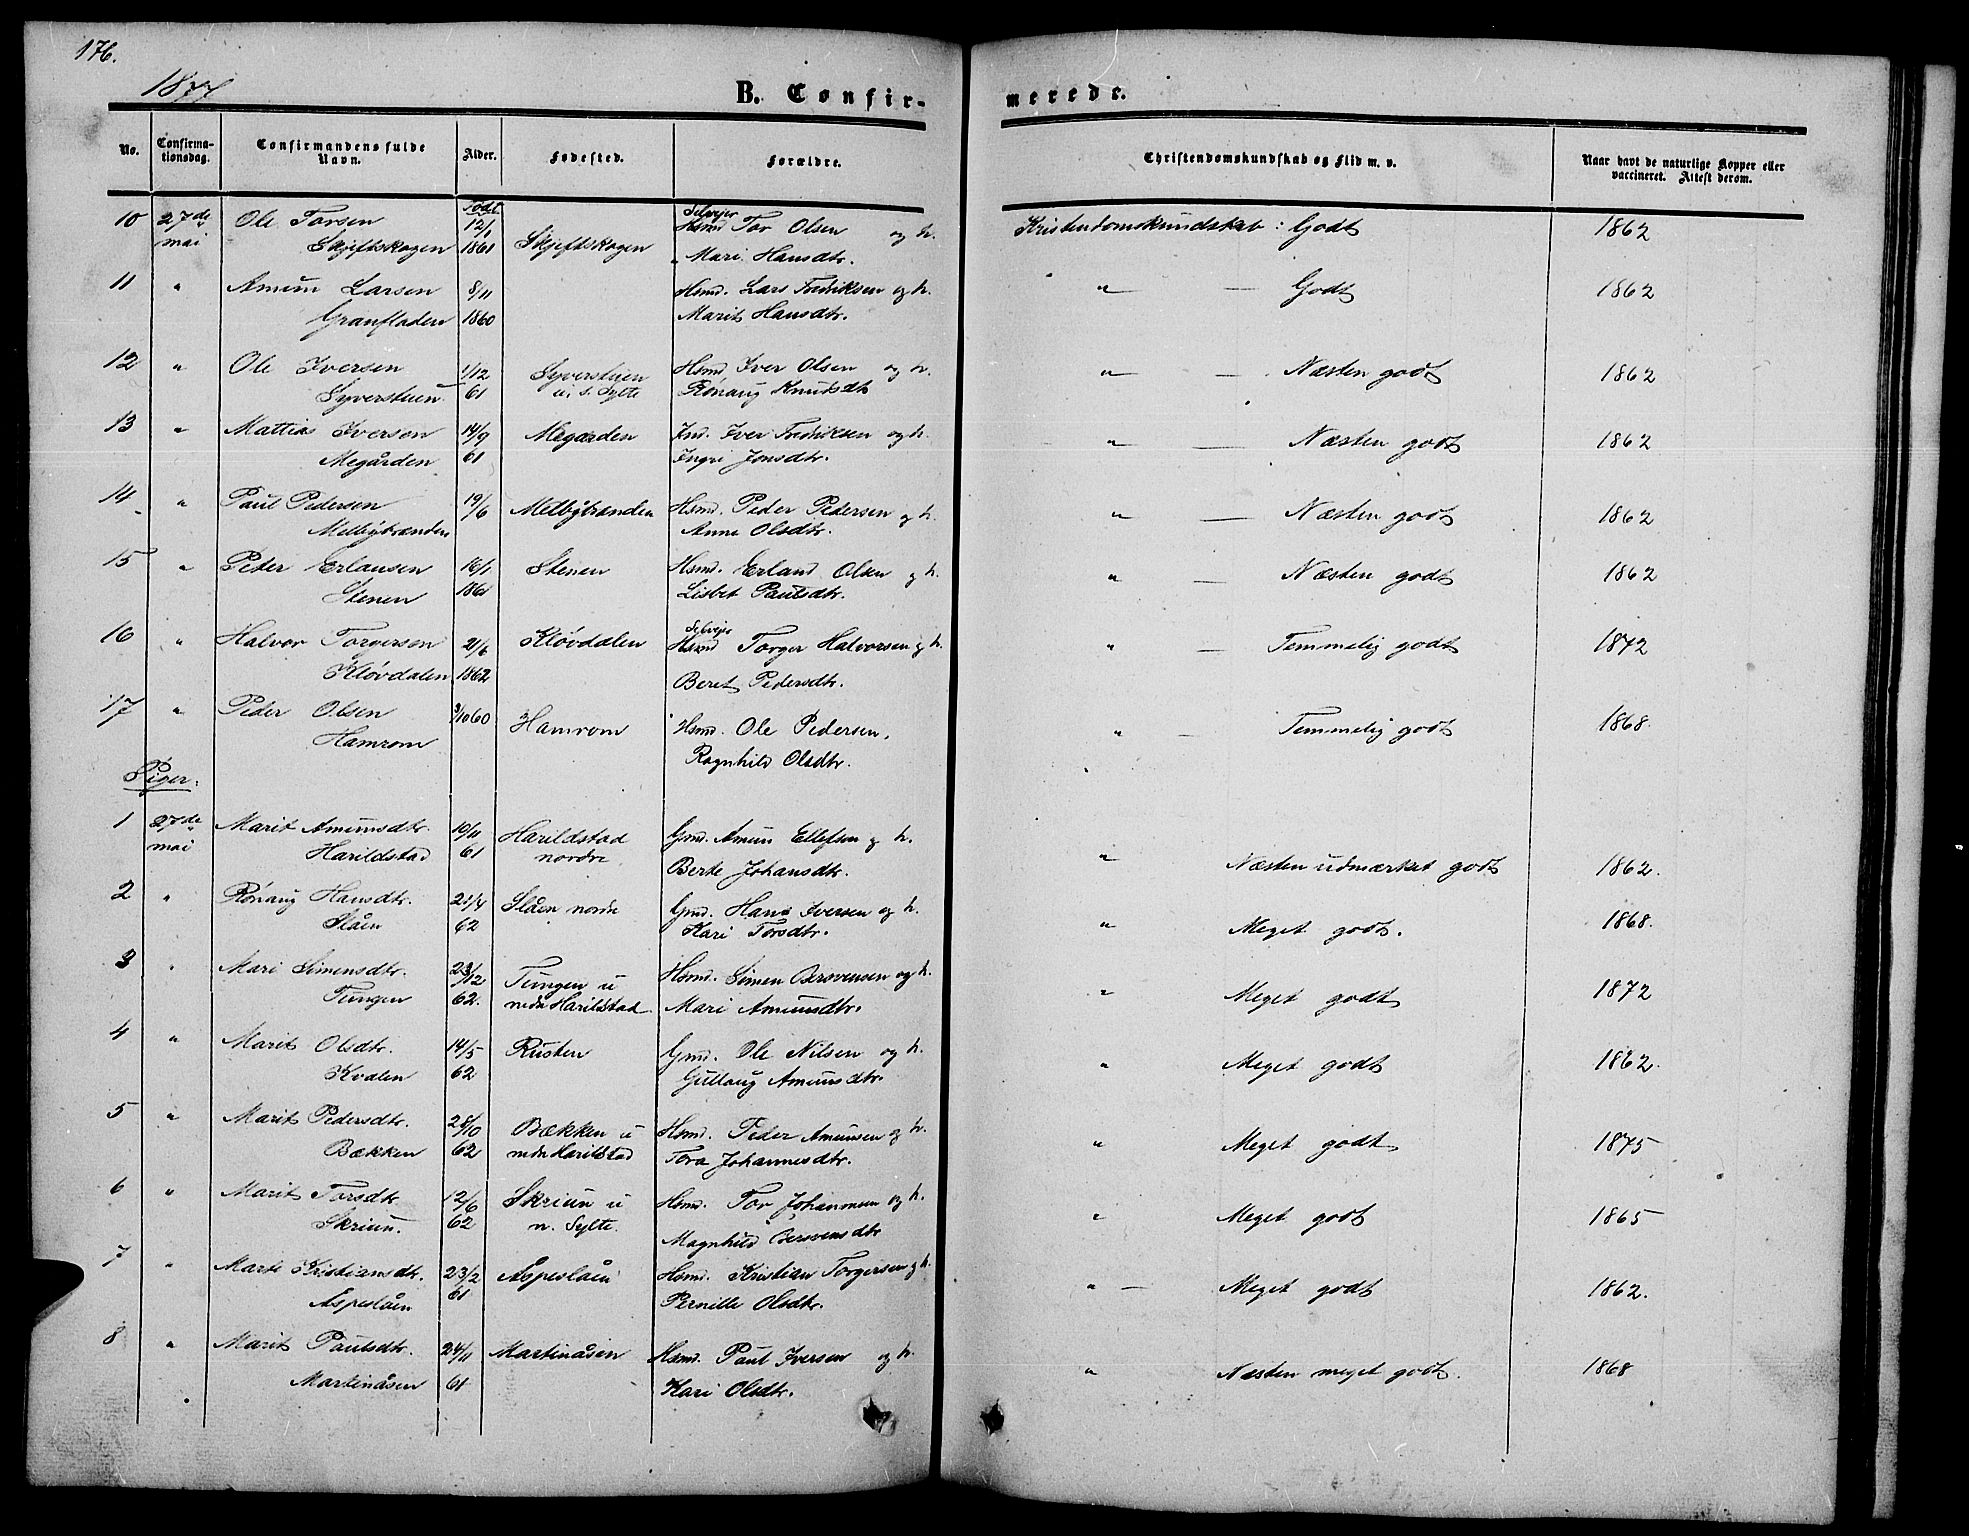 176.
1877
B. Confir-
merede.
No.
Confirma-
tionsdag.
Confirmandens fulde
Navn.
Alder.
Fødested.
Forældre.
Christendomskundskab og Flid m. v.
Naar havt de naturlige Kopper eller
vaccineret. Attest derom.
Født
10 27de mai Ole Torsen Skjeftskogen 12/1 1861 Skjeftskogen Selvejer Hsmd Tor Olsen og h. Mari Hansdtr. Kristendomskundskab: Godt 1862
11 " Amun Larsen Granfladen 8/11 1860 Hsmd. Lars Fredriksen og h. Marit Hansdtr. " — Godt 1862
12 " Ole Iversen Syverstuen 1/12 61 Syverstuen u. s. Sylte Hsmd Iver Olsen og h. Rønaug Knudsdtr " — Næsten godt 1862
13 " Mattias Iversen Megården 14/9 61 Megården Ind. Iver Fredriksen og h. Ingri Jonsdtr. " — Næsten godt 1862
14 " Paul Pedersen Melbybrænden 19/6 Melbybrænden Hsmd. Peder Pedersen og h. Anne Olsdtr. " — Næsten godt 1862
15 " Peder Erlansen Stenen 16/1 1861 Stenen Hsmd. Erland Olsen og h. Lisbet Paulsdtr. " — Næsten godt 1862
16 " Halvor Torgersen Kløvdalen 21/6 1862 Kløvdalen Selvejer Hsmd Torger Halvorsen og h. Beret Pedersdtr. " — Temmelig godt 1872
17 " Peder Olsen Hamrom 3/10 60 Hamrom Hsmd. Ole Pedersen, Ragnhild Olsdtr. " — Temmelig godt 1868.
Piger.
1 27de mai Marit Amunsdtr. Harildstad 10/11 61 Harildstad nordre Gmd. Amun Ellefsen og h. Berte Johansdtr. " Næsten udmærket godt 1862.
2 " Rønaug Hansdtr. Slåen 21/4 62 Slåen nordre Gmd. Hans Iversen og h. Kari Torsdtr. " Meget godt. 1868.
3 " Mari Simensdtr. Tungen 23/12 62. Tungen u ndr Harildstad Hsmd. Simen Bersvensen og h. Mari Amunsdtr. " Meget godt 1872
4 " Marit Olsdtr. Kvalen 14/5 62 Rusten Gmd. Ole Nilsen og h. Gullaug Amunsdtr. " Meget godt 1862.
5 " Marit Pedersdtr. Bækken 28/10 62 Bækken u ndr Harildstad Hsmd. Peder Amunsen og h. Tora Johannesdtr. " Meget godt 1875
6 " Marit Torsdtr Skriun. 12/6 62 Skriun u n. Sylte. Hsmd. Tor Johannesen og h. Magnhild Bersvensdtr " Meget godt 1865
7 " Marte Kristiansdtr. Åspeslåen 23/2 61 Åspeslåen Hsmd. Kristian Torgersen og h. Pernille Olsdtr. " — Meget godt 1862.
8 " Marit Paulsdtr. Martinåsen 24/11 61 Martinåsen Hsmd. Paul Iversen og h. Kari Olsdtr. " Næsten meget godt. 1868